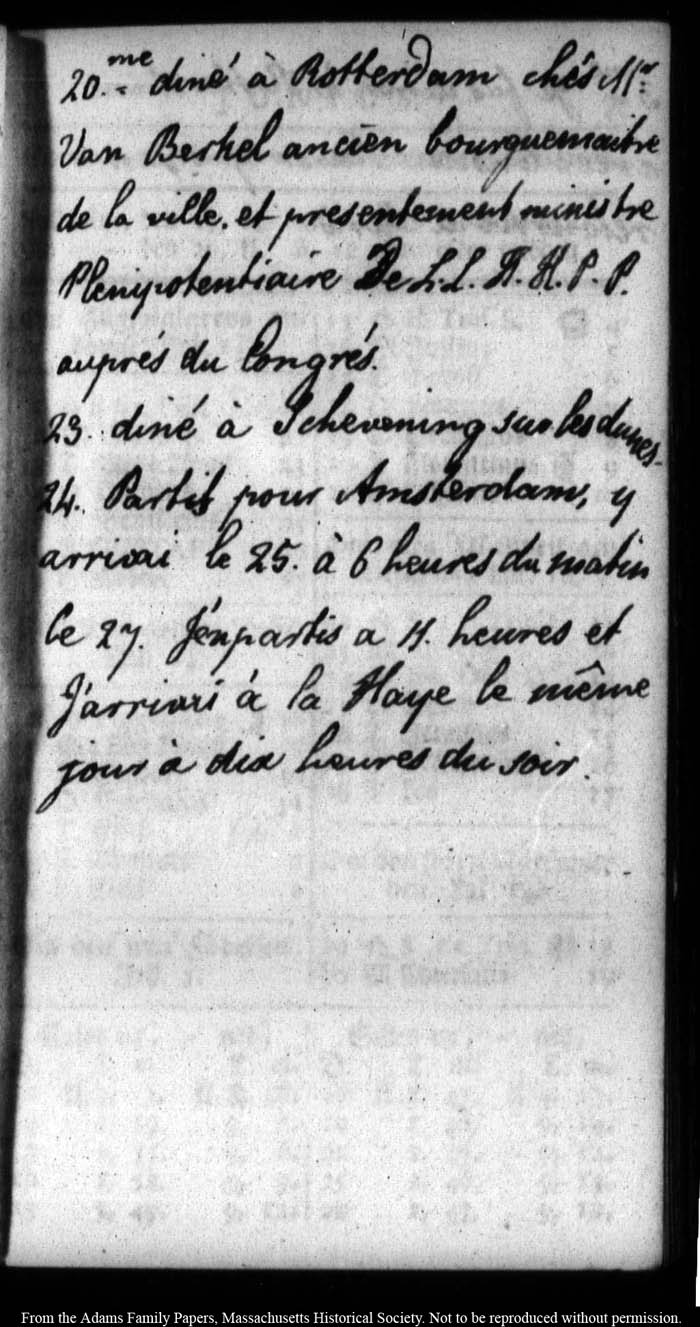 20.me diné à Rotterdam chés Mr:
Van Berkel ancien bourguemaitre
de la ville, et presentement ministre
Plenipotentiaire De L.L. H.H.P.P.
auprés du Congrés.
23. diné à Schevening sur les dunes.
24. Partit pour Amsterdam, y
arrivai le 25. à 6 heures du matin
le 27. J'en partis a 11. heures et
J'arrivai à la Haye le même
jour à dix heures du soir.
From the Adams Family Papers, Massachusetts Historical Society. Not to be reproduced without permission.